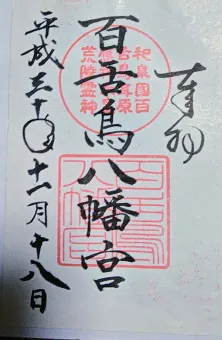 奉拝
百舌鳥八幡宮
平成三十年十一月十八日
和泉国百
舌鳥
荒陵霊神